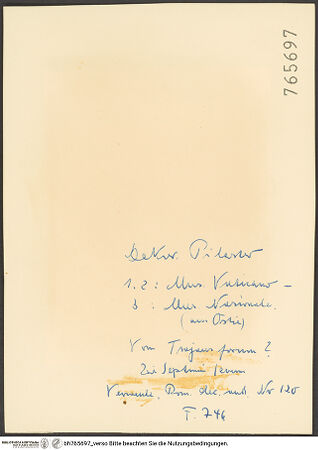 765697
Dekor. Pilaster
1. 2 : Mus. Vaticano –
3 : Mus Nazionale.
(aus Ostia)
Vom Trajans forum ?
Zu Septimi
Rom. dec. und No 120
T. 746
bh765697_verso Bitte beachten Sie die Nutzungsbedingungen.